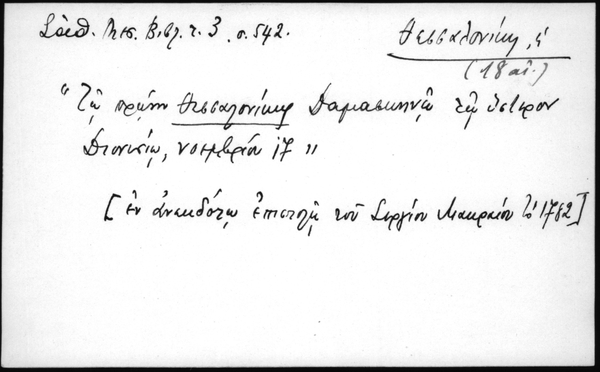 Σάθ. Μεσ. Βιβλ. τ. 3, σ. 542.
Θεσσαλονίκη, ἡ
(18 αἰ.)
"Τῷ πρώην Θεσσαλονίκης Δαμασκηνῷ τῷ ὕστερον
Διονυσίῳ, νοεμβρίου 17"
[ἐν ἀνεκδότῳ ἐπιστολῇ τοῦ Σεργίου Μακραίου τῷ 1782]